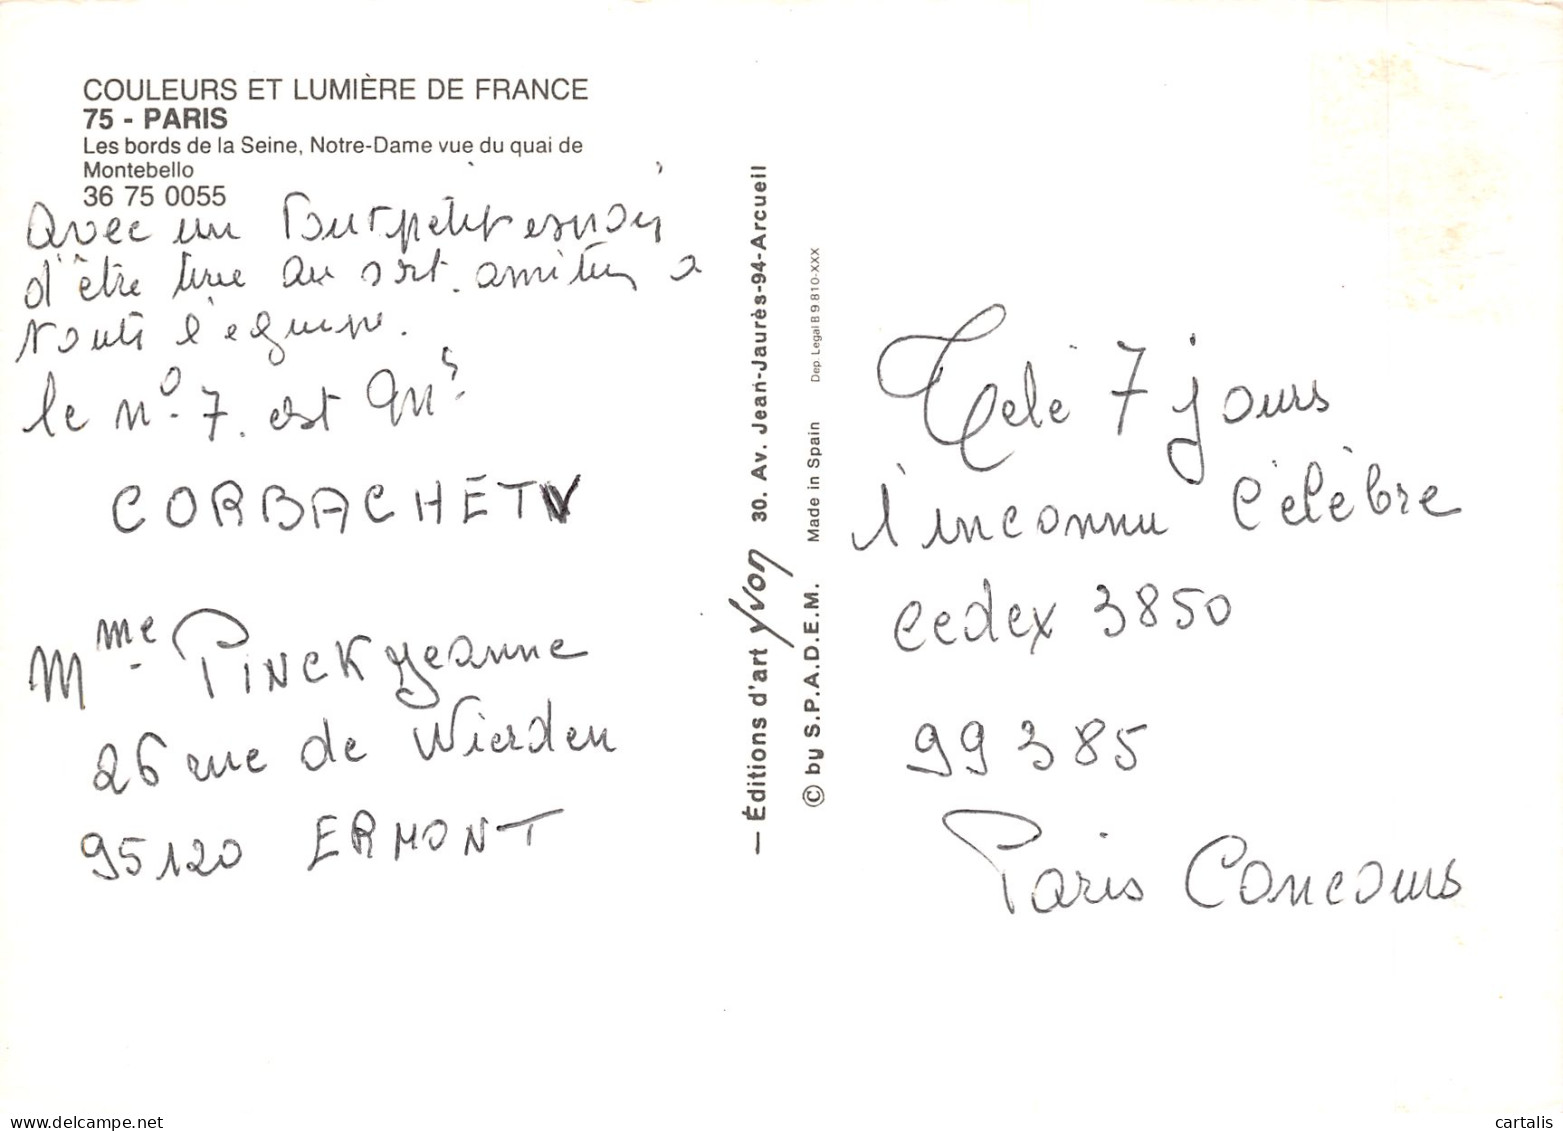 COULEURS ET LUMIÈRE DE FRANCE
75 - PARIS
Les bords de la Seine, Notre-Dame vue du quai de
Montebello
36 75 0055
Avec un tout petit espoir
d'être tirée au sort. amitiés à
toute l'équipe.
le n° 7. est Mr
CORBACHET
Mme PINCK Jeanne
26 rue de Wierden
95120 ERMONT
— Éditions d'art yvon 30. Av. Jean-Jaurès-94-Arcueil
© by S.P.A.D.E.M. Made in Spain Dep. Legal B 9 810-XXX
Télé 7 jours
l'inconnu Célèbre
cedex 3850
99385
Paris Concours
cartalis
delcampe.net